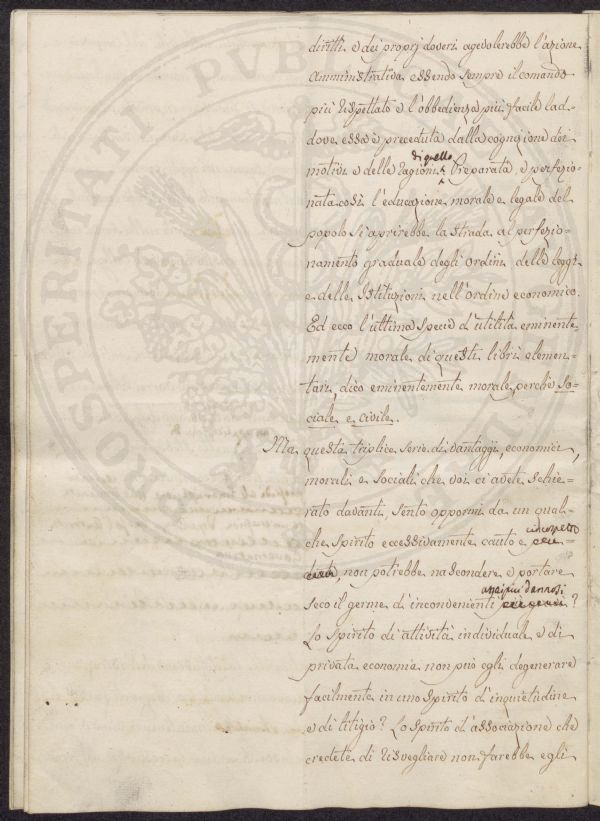 diritti e dei proprj doveri agevolerebbe l'azione
amministrativa essendo sempre il comando
più rispettato e l'obbedienza più facile lad-
dove essa è preceduta dalla cognizione dei
di quello
motivi e delle ragioni. Preparata, e perfezio-
nata così l'educazione morale e legale del
popolo si aprirebbe la strada al perfezio-
namento graduale degli ordini delle leggi
e delle Istituzioni nell'ordine economico.
Ed ecco l'ultima specie d'utilità eminente-
mente morale di questi libri elemen-
tari, dico eminentemente morale, perchè so-
ciale e civile.
Ma questa triplice serie di vantaggi, economici,
morali e sociali che voi ci avete schie-
rato davanti, sento oppormi da un qual-
circospetto
che spirito eccessivamente cauto e
, non potrebbe nascondere e portare
assai più dannosi
seco il germe d'inconvenienti ?
Lo spirito di attività individuale e di
privata economia non può egli degenerare
facilmente in uno spirito d'inquietudine
e di litigio? Lo spirito d'associazione che
credete di risvegliare non farebbe egli
PROSPERITATI PUBLICAE